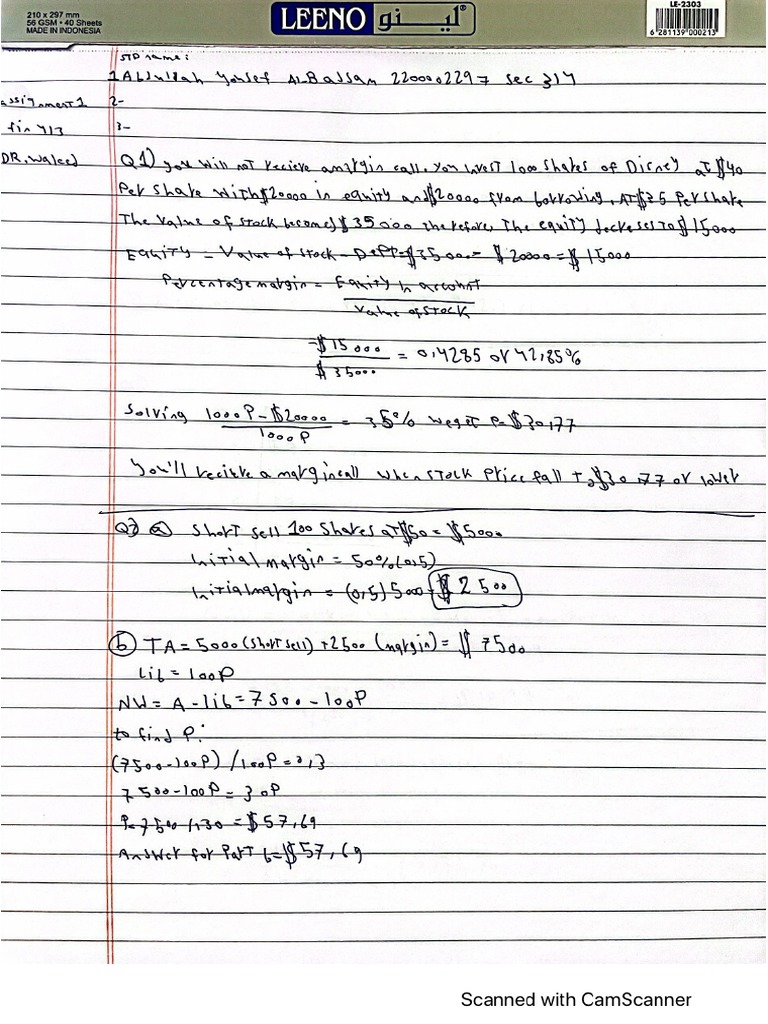 210 x 297 mm
56 GSM • 40 Sheets
MADE IN INDONESIA
LEENO لينو ®
LE-2303
6 281139 000213
STD name:
1 Abdullah Yousef Al-Bassam 2200002297 sec 314
assignment 1 2-
fin 413 3-
DR. waleed Q1) you will not recieve a margin call. You invest 1000 shares of Disney at $40
Per share with $20000 in equity and $20000 from borrowing. AT $35 Per share
The value of stock becomes $35000 therefore, The equity decreses to $15000
Equity = Value of stock - Dept = $35000 - $20000 = $15000
Percentage margin = Equity in account
value of stock
= $15000 = 0,4285 or 42,85%
$35000
Solving 1000P - $20000 = 35% we get P = $30,77
1000P
You'll recieve a margin call when stock price fall to $30.77 or lower
Q2) a Short sell 100 shares at $50 = $5000
Initial margin = 50% (0,5)
Initial margin = (0,5) 5000 = $2500
b TA = 5000 (short sell) + 2500 (margin) = $7500
Lib = 100P
NW = A - lib = 7500 - 100P
to find P:
(7500-100P) / 100P = 0,3
7500-100P = 30P
P = 7500/130 = $57,69
Answer for Part b = $57,69
Scanned with CamScanner